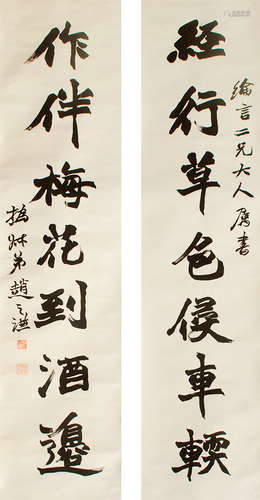 綸言二兄大人屬書
經行草色侵車輭
作伴梅花到酒邊
撝叔弟趙之謙